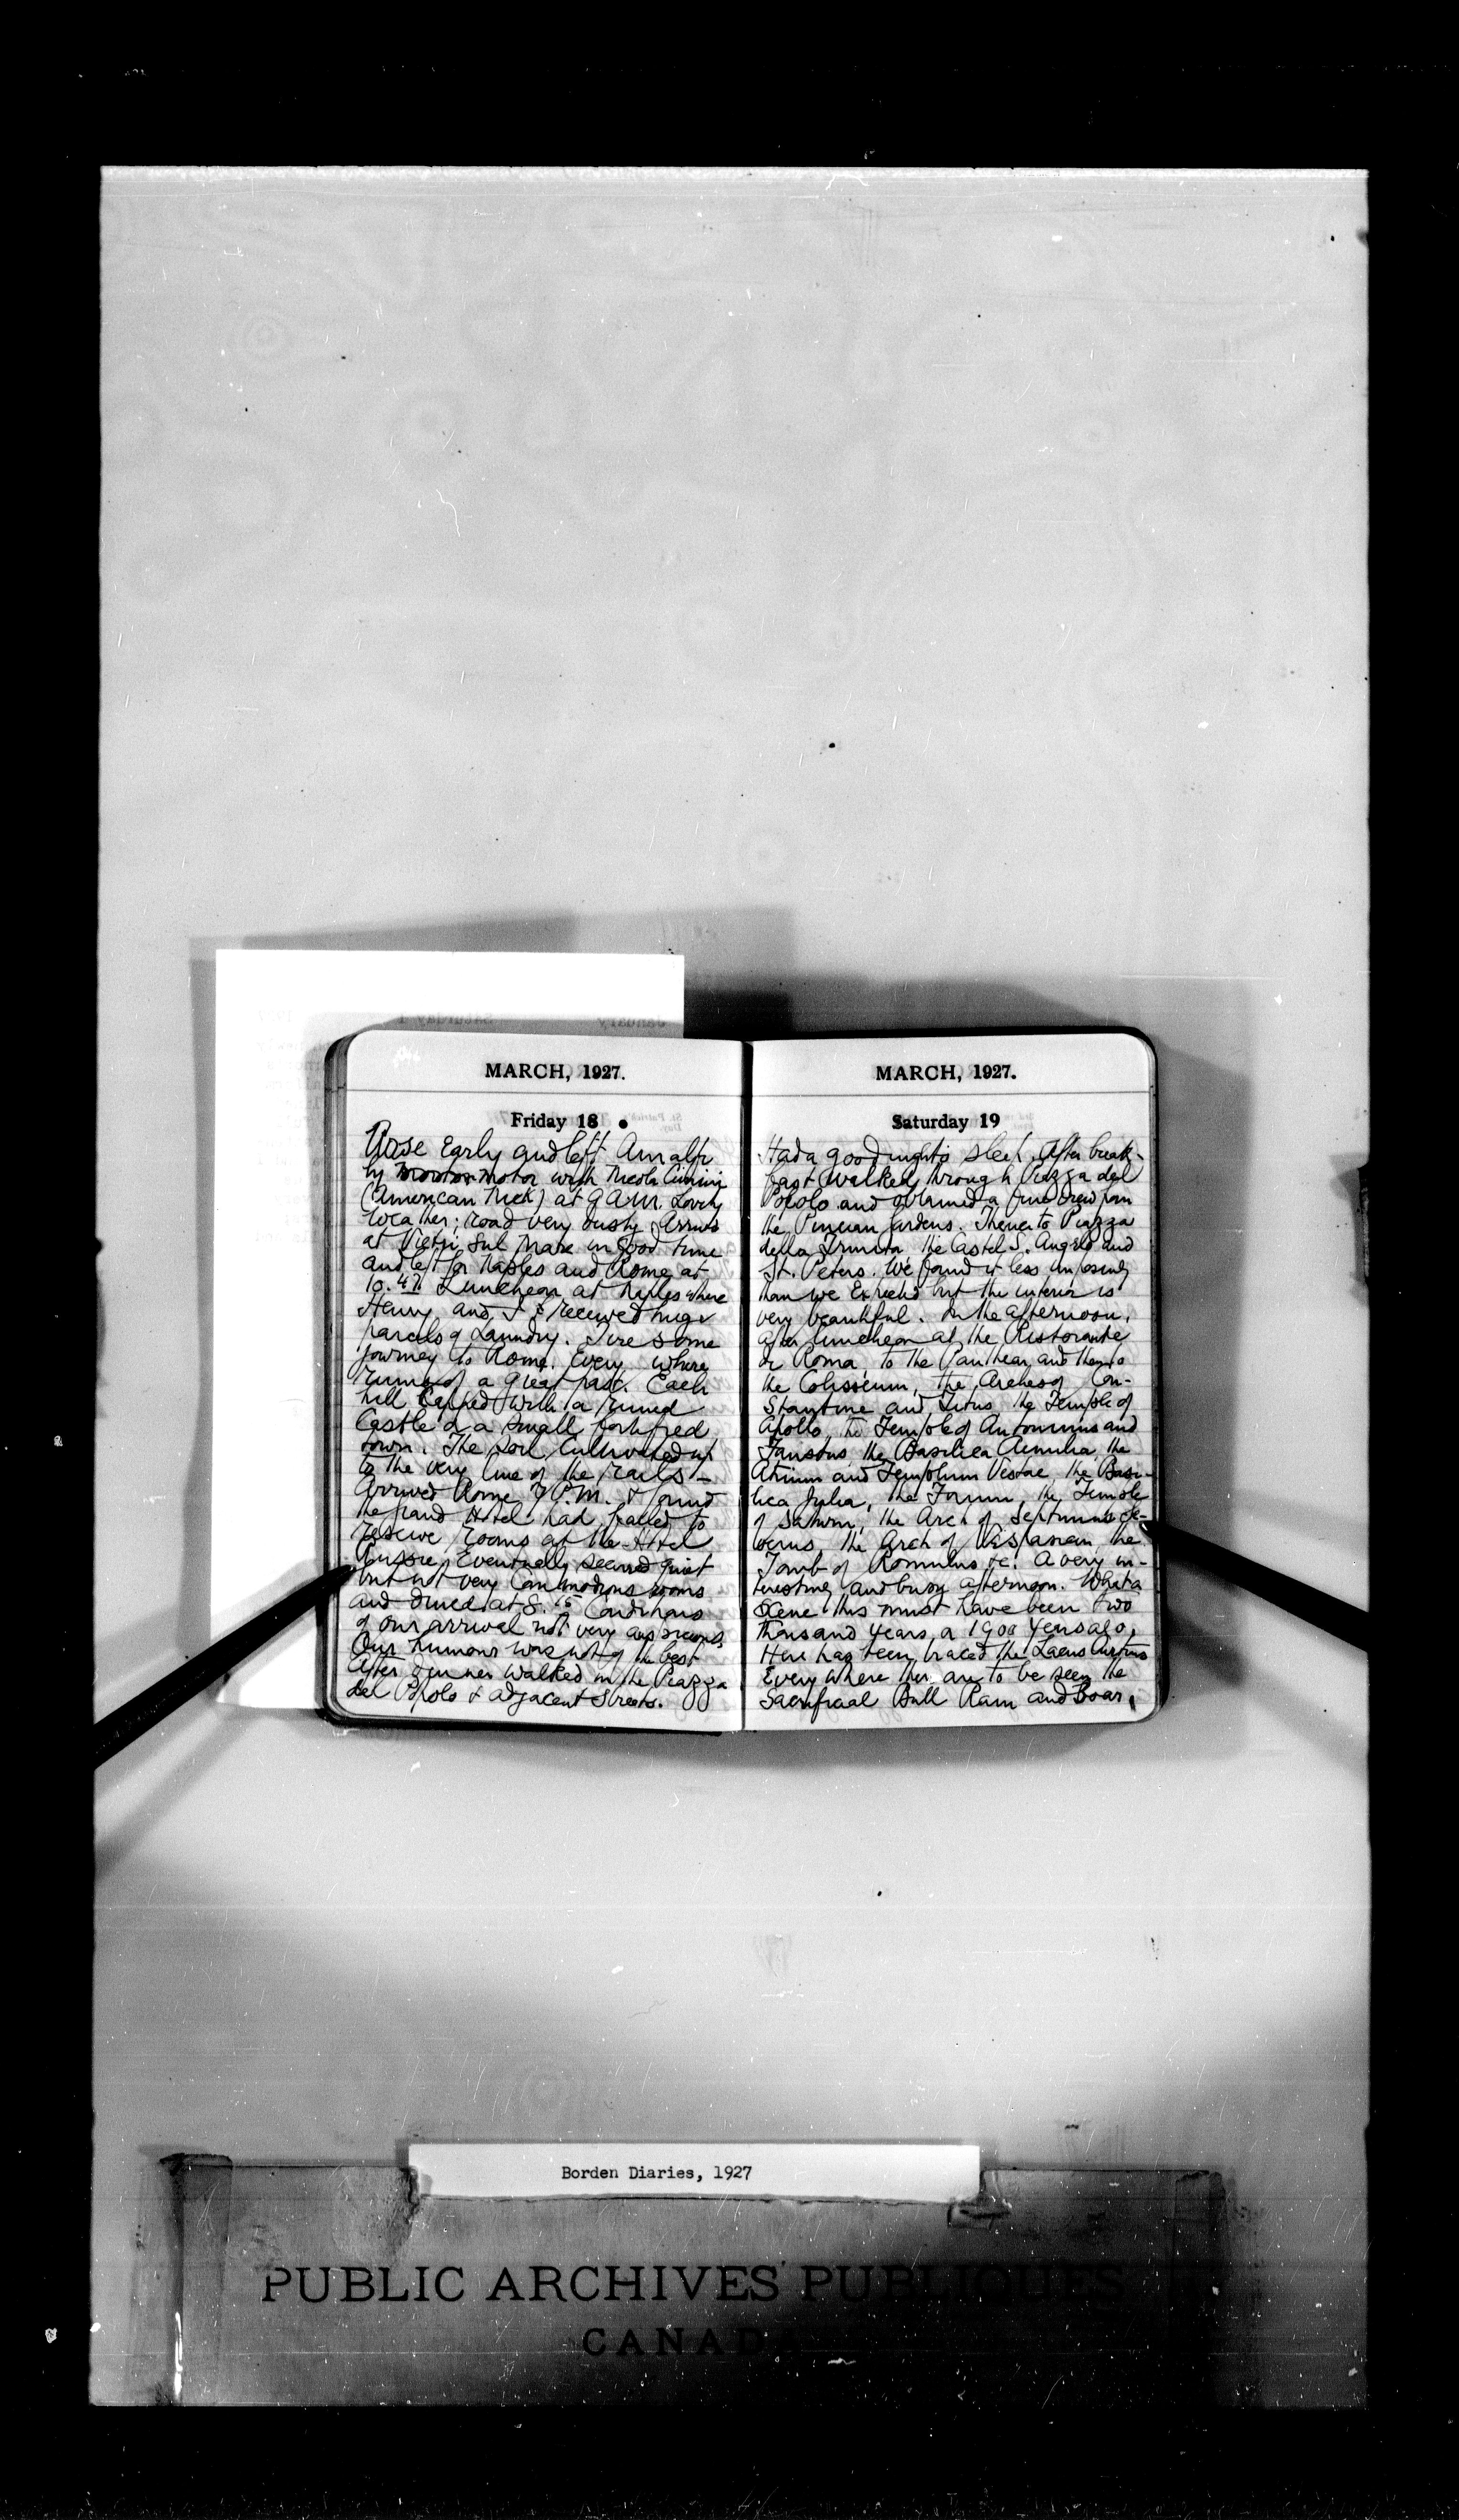 MARCH, 1927.
Friday 18
Rose early and left Amalfi
by motor with Nicola
(American Nick) at 9 A.M. Lovely
weather; road very dusty. Arrived
at Vietri Sul Mare in good time
and left for Naples and Rome at
10.47. Luncheon at Naples where
Henry and I received huge
parcels of Laundry. Tiresome
journey to Rome. Every where
ruins of a great past. Each
hill capped with a ruined
Castle or a small fortified
town. The soil cultivated up
to the very line of the rails –
Arrived Rome P.M. & found
the Grand Hotel had failed to
reserve rooms at the Hotel
Russie. Eventually secured quiet
but not very commodious rooms
and dined at 8.15 Conditions
of our arrival not very auspicious,
Our humour was not of the best
After dinner walked in the Piazza
del Popolo & adjacent streets.
MARCH, 1927.
Saturday 19
Had a good night's sleep. After break-
fast walked through Piazza del
Popolo and obtained a fine view from
the Pincian Gardens. Thence to Piazza
della Trinita the Castel S. Angelo and
St. Peters. We found it less imposing
than we expected but the interior is
very beautiful. In the afternoon,
after luncheon at the Ristorante
Roma, to the Pantheon and then to
the Colisseum, the Arches of Con-
stantine and Titus, the Temple of
Apollo, the Temple of Antoninus and
Faustus, the Basilica Aemilia, the
Atrium and Templum Vestae, the Basi-
lica Julia, the Forum, the Temple
of Saturn, the Arch of Septimus Se-
verus, the Arch of Vespasian, the
Tomb of Romulus &c. A very in-
teresting and busy afternoon. What a
scene this must have been two
thousand years or 1900 years ago,
Here has been traced the Lacus Curtius
Every where there are to be seen the
Sacrificial Bull Ram and Boar,
Borden Diaries, 1927
PUBLIC ARCHIVES PUBLIQUES
CANADA